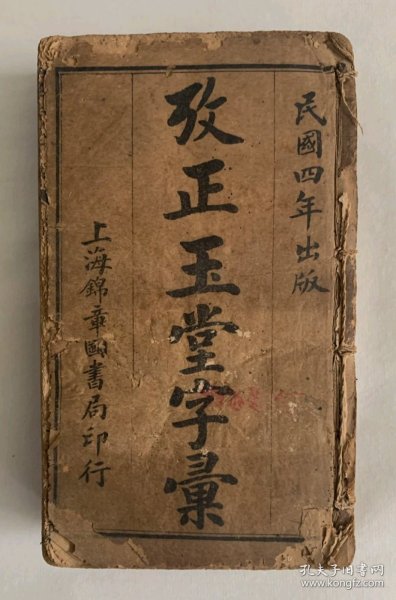 民國四年出版
攷正玉堂字彙
上海錦章圖書局印行
孔夫子旧书网
www.kongfz.com